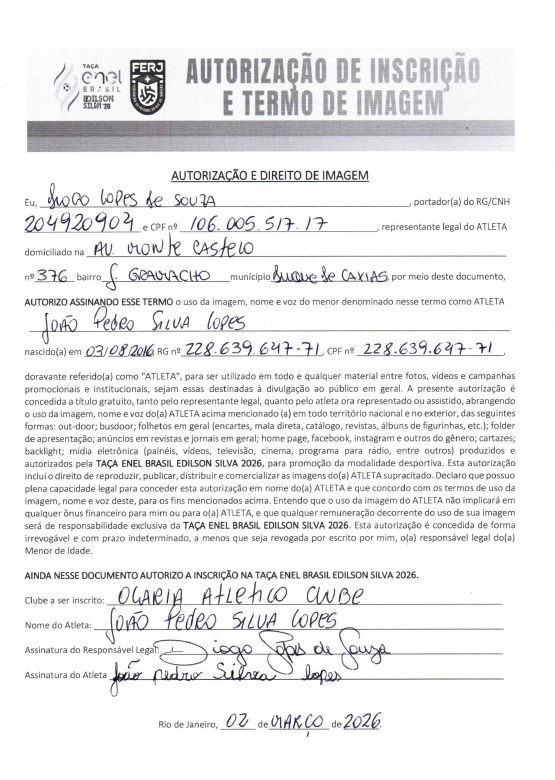 TAÇA
enel
BRASIL
EDILSON
SILVA '26
FERJ
AUTORIZAÇÃO DE INSCRIÇÃO
E TERMO DE IMAGEM
AUTORIZAÇÃO E DIREITO DE IMAGEM
Eu, DIOGO LOPES DE SOUZA, portador(a) do RG/CNH
204920904 e CPF nº 106.005.517.17, representante legal do ATLETA
domiciliado na AV. MONTE CASTELO
nº 376 bairro J. GRAMACHO município DUQUE DE CAXIAS, por meio deste documento,
AUTORIZO ASSINANDO ESSE TERMO o uso da imagem, nome e voz do menor denominado nesse termo como ATLETA
JOÃO PEDRO SILVA LOPES
nascido(a) em 03/08/2016 RG nº 228.639.647-71, CPF nº 228.639.647-71,
doravante referido(a) como "ATLETA", para ser utilizado em todo e qualquer material entre fotos, vídeos e campanhas
promocionais e institucionais, sejam essas destinadas à divulgação ao público em geral. A presente autorização é
concedida a título gratuito, tanto pelo representante legal, quanto pelo atleta ora representado ou assistido, abrangendo
o uso da imagem, nome e voz do(a) ATLETA acima mencionado (a) em todo território nacional e no exterior, das seguintes
formas: out-door; busdoor; folhetos em geral (encartes, mala direta, catálogo, revistas, álbuns de figurinhas, etc.); folder
de apresentação; anúncios em revistas e jornais em geral; home page, facebook, instagram e outros do gênero; cartazes;
backlight; mídia eletrônica (painéis, vídeos, televisão, cinema, programa para rádio, entre outros) produzidos e
autorizados pela TAÇA ENEL BRASIL EDILSON SILVA 2026, para promoção da modalidade desportiva. Esta autorização
inclui o direito de reproduzir, publicar, distribuir e comercializar as imagens do(a) ATLETA supracitado. Declaro que possuo
plena capacidade legal para conceder esta autorização em nome do(a) ATLETA e que concordo com os termos de uso da
imagem, nome e voz deste, para os fins mencionados acima. Entendo que o uso da imagem do ATLETA não implicará em
qualquer ônus financeiro para mim ou para o(a) ATLETA, e que qualquer remuneração decorrente do uso de sua imagem
será de responsabilidade exclusiva da TAÇA ENEL BRASIL EDILSON SILVA 2026. Esta autorização é concedida de forma
irrevogável e com prazo indeterminado, a menos que seja revogada por escrito por mim, o(a) responsável legal do(a)
Menor de Idade.
AINDA NESSE DOCUMENTO AUTORIZO A INSCRIÇÃO NA TAÇA ENEL BRASIL EDILSON SILVA 2026.
Clube a ser inscrito: OLARIA ATLETICO CLUBE
Nome do Atleta: JOÃO PEDRO SILVA LOPES
Assinatura do Responsável Legal: Diogo Lopes de Souza
Assinatura do Atleta João pedro Silva lopes
Rio de Janeiro, 02 de MARÇO de 2026.